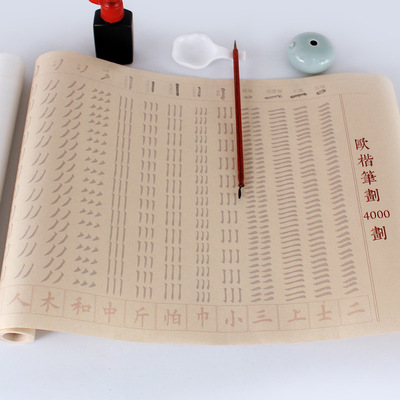 歐楷筆劃
4000
劃
人木和中斤怕巾小三上士二